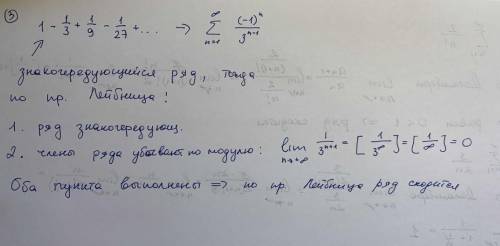 ③ 1 - 1/3 + 1/9 - 1/27 + ... → ∑_{n=1}^{∞} (-1)^n / 3^{n-1}
знакочередующийся ряд, тогда
по пр. Лейбница:
1. ряд знакочередующ.
2. члены ряда убывают по модулю: lim_{n→+∞} 1/3^{n+1} = [1/3^∞] = [1/∞] = 0
Оба пункта выполнены => по пр. Лейбница ряд сходится